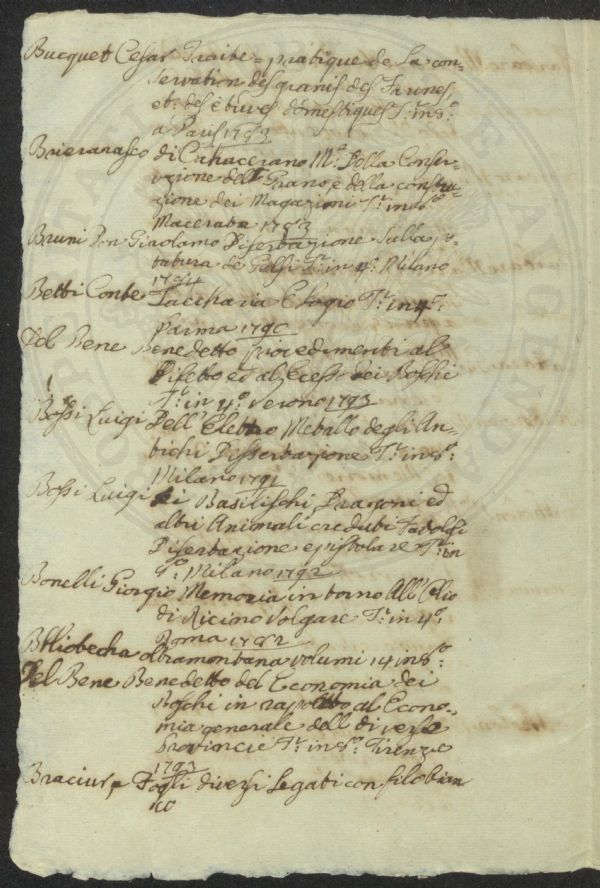 Bucquet Cesar Traité=pratique de la con-
servation des grains des Farines,
et: des étuves domestiques T.º in 8.º
a Paris 1783
di Cahacerano M.ª Della Conser-
vazione dell Grano, e della constru-
zione dei Magazzini T.º in 8.º
Macerata 1783
Bruni Don Girolamo Disertazione Sulla po-
tatura de Gelsi T.º in 4.º Milano
1794
Betti Conte Zaccharia Elogio T.º in 4.º:
Parma 1790
Del Bene Benedetto procedimenti al
Difetto ed al Ecesso dei Boschi
T.º in 4.º Verono 1793
Bossi Luigi Dell' Elettro Metallo degli An-
tichi Dissertazione T.º in 8.º:
Milano 1791
Bossi Luigi Dei Basilischi Dragoni ed
altri Animali creduti Favolosi
Disertazione epistolare T.º in
8.º Milano 1792
Bonelli Giorgio Memoria intorno All' Olio
di Ricino Volgare T.º in 4.º
Roma 1782
Bibliothecha oltramontana volumi 14 in 8.º:
Del Bene Benedetto del Economia dei
Boschi in rapotto al Econo-
mia generale dell diverse
provincie T.º in 8.º Firenze
1793
Fogli diversi Legati con filo bian
co